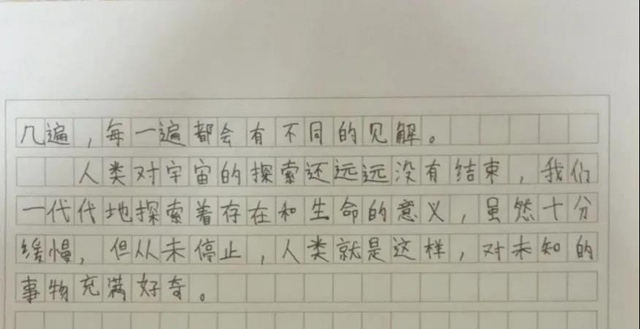 几遍，每一遍都会有不同的见解。
人类对宇宙的探索还远远没有结束，我们
一代代地探索着存在和生命的意义，虽然十分
缓慢，但从未停止，人类就是这样，对未知的
事物充满好奇。